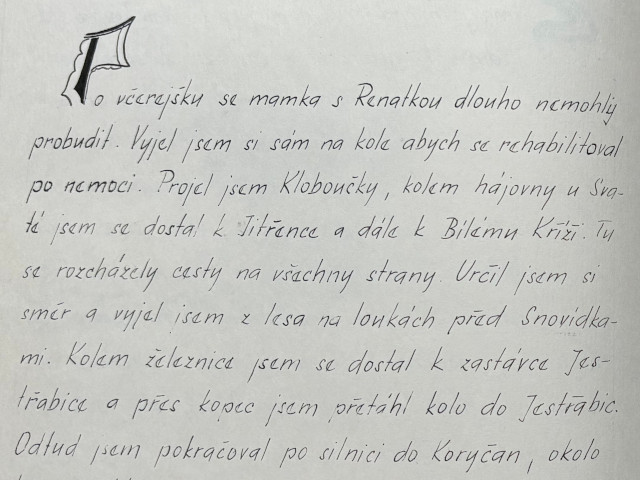 Po včerejšku se mamka s Renatkou dlouho nemohly
probudit. Vyjel jsem si sám na kole abych se rehabilitoval
po nemoci. Projel jsem Kloboučky, kolem hájovny u Sva-
té jsem se dostal k Jitřence a dále k Bílému Kříži. Tu
se rozcházely cesty na všechny strany. Určil jsem si
směr a vyjel jsem z lesa na loukách před Snovídka-
mi. Kolem železnice jsem se dostal k zastávce Jes-
třabice a přes kopec jsem přetáhl kolo do Jestřabic.
Odtud jsem pokračoval po silnici do Koryčan, okolo